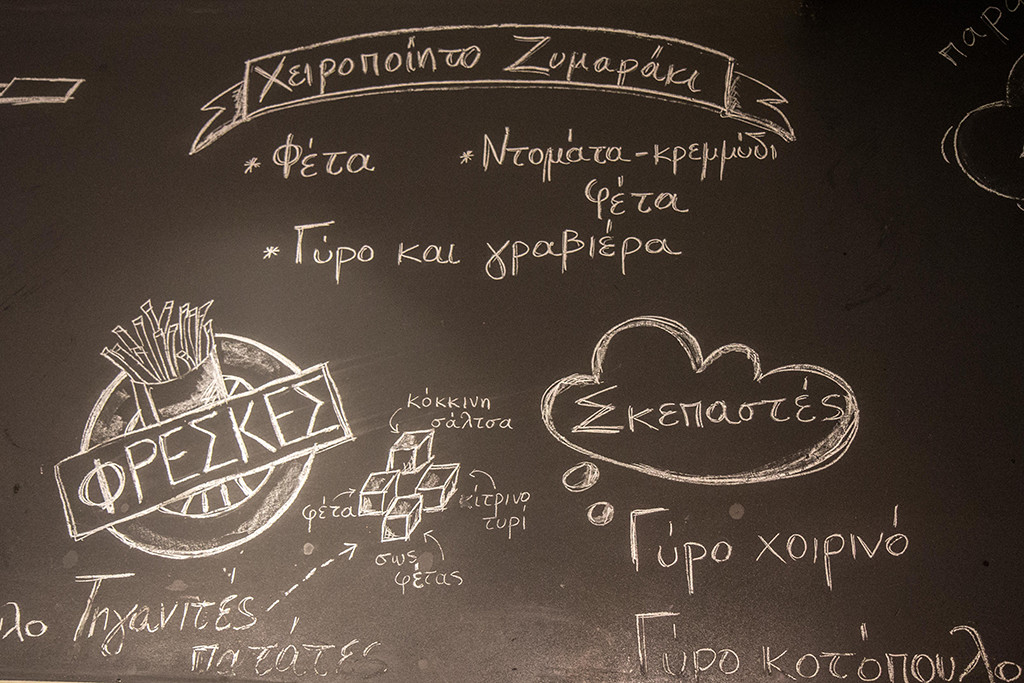 Χειροποίητο Ζυμαράκι
* Φέτα
* Ντομάτα-κρεμμύδι
φέτα
* Γύρο και γραβιέρα
ΦΡΕΣΚΕΣ
Τηγανιτές
πατάτες
κόκκινη
σάλτσα
φέτα
κίτρινο
τυρί
σως
φέτας
Σκεπαστές
Γύρο χοιρινό
Γύρο κοτόπουλο